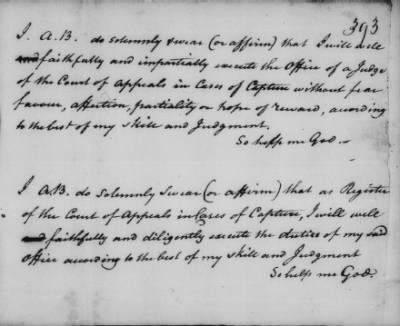 393
I. A. B. do solemnly swear (or affirm) that I will well
and faithfully and impartially execute the Office of a Judge
of the Court of Appeals in Cases of Capture without fear
favour, affection, partiality or hope of reward, according
to the best of my skill and Judgment.
So help me God.—
I A.B. do Solemnly Swear (or affirm) that as Register
of the Court of Appeals in Cases of Capture, I will well
and faithfully and diligently execute the duties of my said
Office according to the best of my skill and Judgment
So help me God.